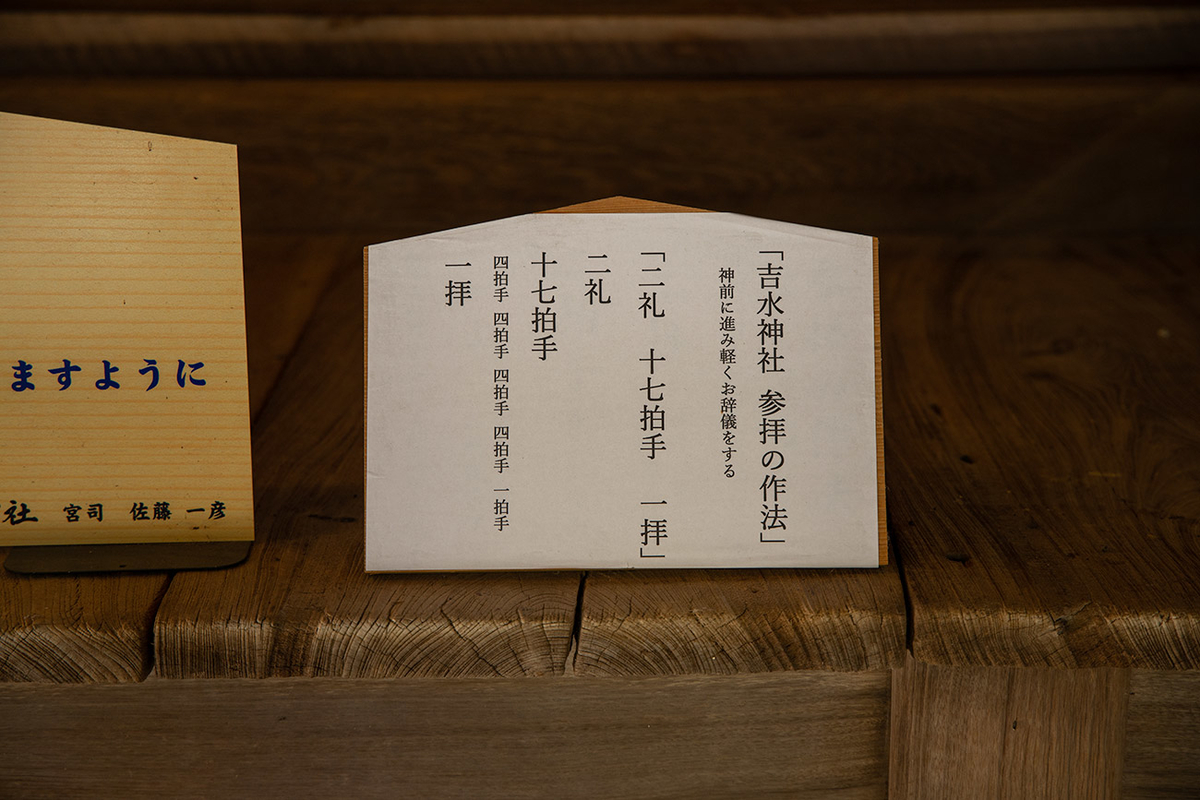 「吉水神社 参拝の作法」
神前に進み軽くお辞儀をする
「二礼 十七拍手 一拝」
二礼
十七拍手
四拍手 四拍手 四拍手 四拍手 一拍手
一拝
ますように
社 宮司 佐藤 一彦